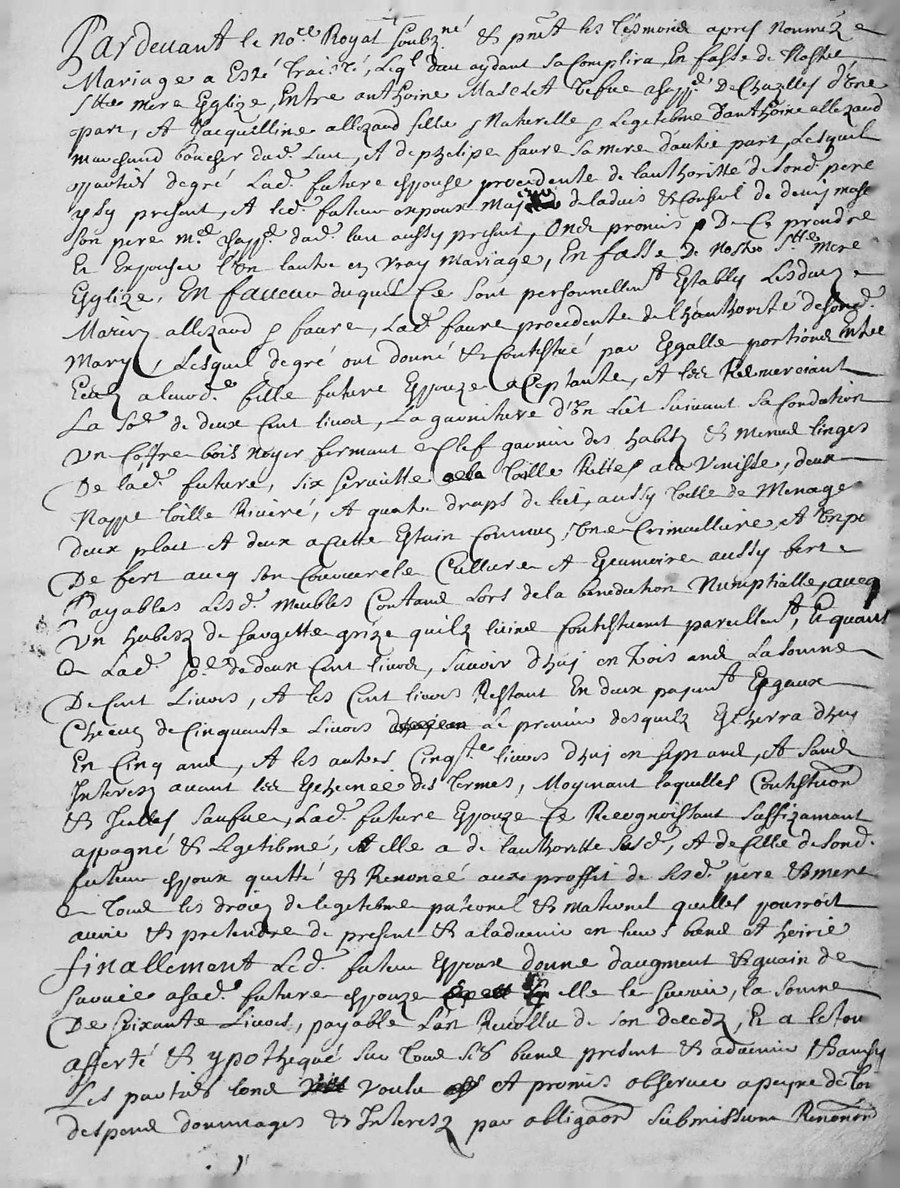 Pardevant le no.re Royal soubz.né & p̃nt les tesmoins apres nommez
Mariage a esté traitté, leql dieu aydant sa complira, en fasse de nostre
s.tte mere esglize, entre anthoine Masclat vefue de Chazlles d'vne
part, et Jacquelline allezaud fille & naturelle & legetibme d'anthoine allezaud
marchand boucher dud. lieu, et de phelipe faure sa mere d'autre part, lesquil
parties de gré lad. future espouse procedente de l'authoritté de sond. pere
ysy present, et led. futeur expoux de ladvis & conseil de
son pere m.e dud. lieu aussy present, ont promis De Ce prendre
Et Expouser l'vn lautre en vray mariage, En fasse De nostre s.tte mere
Esglize, En faveur duquel Ce sont personnellem.t Establis lesduez
Mariez allezaud & faure, lad. faure procedente de l'hauthorité de sond.
Mary, lesquil de gré ont donné & constitué par Esgalle portions entre
Eux a lavd.e fille future Espouze aceptante, et les Remerciant
La so.e de deux cent livres, La garniture d'vn Liet suivant sa condation
vn coffre bois noyer fermant a Clef garnie des habitz & menud linges
De lad. future, six serviette toille Rittes a la Venisse, deux
Nappe toille Riviere, et quatre draps de liet, aussy toille de menage
deux plact et deux aciette Estain Commun, vne Crimaillière, et vn po
De fert avecq son Couvercle Culliere et Escumoire aussy fert
Payables lesd. meubles Contant lors de la benediction Numptialle, avecq
vn habitz de sargette grize quilz luine Constituent pareillem.t, Et quant
a Lad. so.e de deux cent livres, savoir d'huj en trois ans la somme
De Cent Livres, et les Cent livres Restant En deux payem.t Esgaux
Checun de Cinquante Livres le premier desquilz Escherra d'huj
En Cinq ans, et les autres Cinq.te livres d'huj en sept ans, et sans
Interestz avant les Escheues des termes, Moyenant laquelles Constitution
& Icelles saufue, Lad. future Espouze Ce Recognoissant suffizamant
apagné & Legetibmé, et elle a de l'authoritté susd., et de Celle de sond.
futeur espoux quitté & Renoncé aux proffit de sesd. pere & mere
a tous les droicz de legetibme paternel & maternel quelles pourroit
avoir & pretendre de present & a ladvenir en leurs biens et hoirie
finallement Led. futeur Espoux donne d'augment & guain de
survie a sad. future espouze elle le survie, la somme
De soixante Livres, payable l'an Revollu de son decedz, Et a le tou
afferté & ypothequé sur tous ses biens present & advenir & ainsy
Les parties lont voulu et promis observer a peyne de tou
despens dommages & Interestz par obligaõn submissions Renonõn